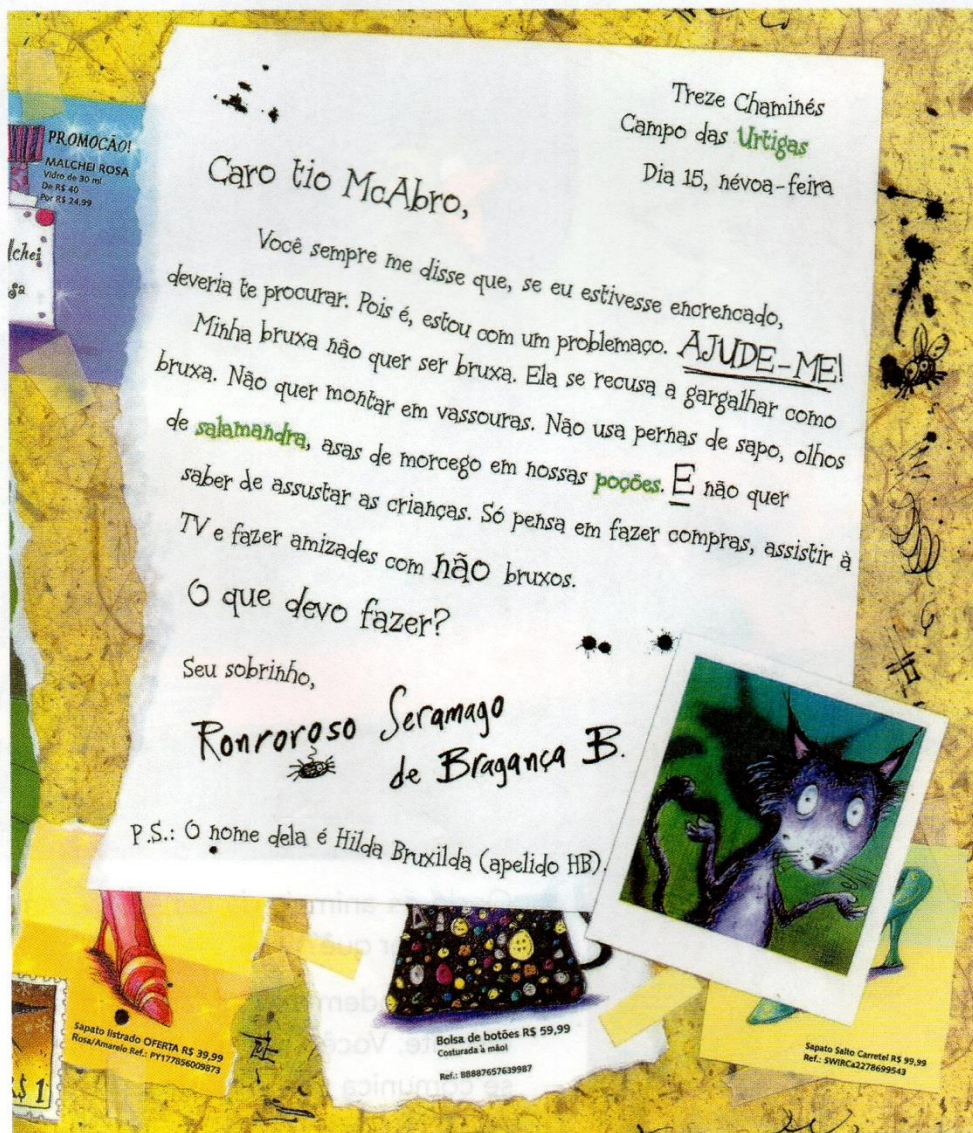 Treze Chaminés
Campo das Urtigas
Dia 15, névoa-feira
PROMOÇÃO!
MALCHEI ROSA
Vidro de 30 ml
De R$ 40
Por R$ 24,99
lchei
sa
Caro tio McAbro,
Você sempre me disse que, se eu estivesse encrencado,
deveria te procurar. Pois é, estou com um problemaço. AJUDE-ME!
Minha bruxa não quer ser bruxa. Ela se recusa a gargalhar como
bruxa. Não quer montar em vassouras. Não usa pernas de sapo, olhos
de salamandra, asas de morcego em nossas poções. E não quer
saber de assustar as crianças. Só pensa em fazer compras, assistir à
TV e fazer amizades com não bruxos.
O que devo fazer?
Seu sobrinho,
Ronroroso Seramago
de Bragança B.
P.S.: O nome dela é Hilda Bruxilda (apelido HB).
Sapato listrado OFERTA R$ 39,99
Rosa/Amarelo Ref.: PY177856009873
Bolsa de botões R$ 59,99
Costurada à mão!
Ref.: BB887657639987
Sapato Salto Carretel R$ 99,99
Ref.: SWIRCa2278699543
R$ 1